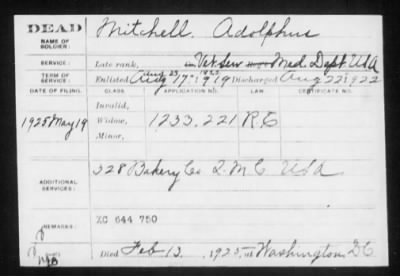 DEAD
NAME OF SOLDIER: Mitchell, Adolphus
SERVICE: Late rank, Vet Serv Med. Dept USA
TERM OF SERVICE: Enlisted Aug 17-1919 Discharged Aug 22 1922
Aug 23, 1922
DATE OF FILING. CLASS. APPLICATION NO. LAW. CERTIFICATE NO.
Invalid,
1925 May 19 Widow, 1233,221 R.E
Minor,
ADDITIONAL SERVICES: 328 Bakery Co Q.M.C USA
REMARKS: XC 644 750
Died Feb 13, 1925, at Washington DC